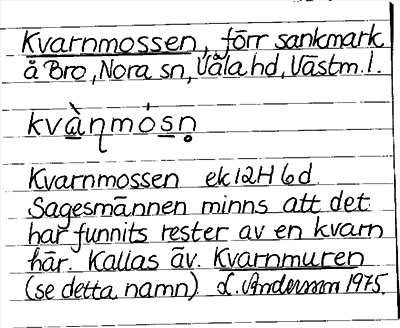 Kvarnmossen, förr sankmark
å Bro, Nora sn, Våla hd, Västm. l.
kvàɳmósn̥
Kvarnmossen ek 12H 6d
Sagesmännen minns att det
har funnits rester av en kvarn
här. Kallas äv. Kvarnmuren
(se detta namn) L. Andersson 1975.